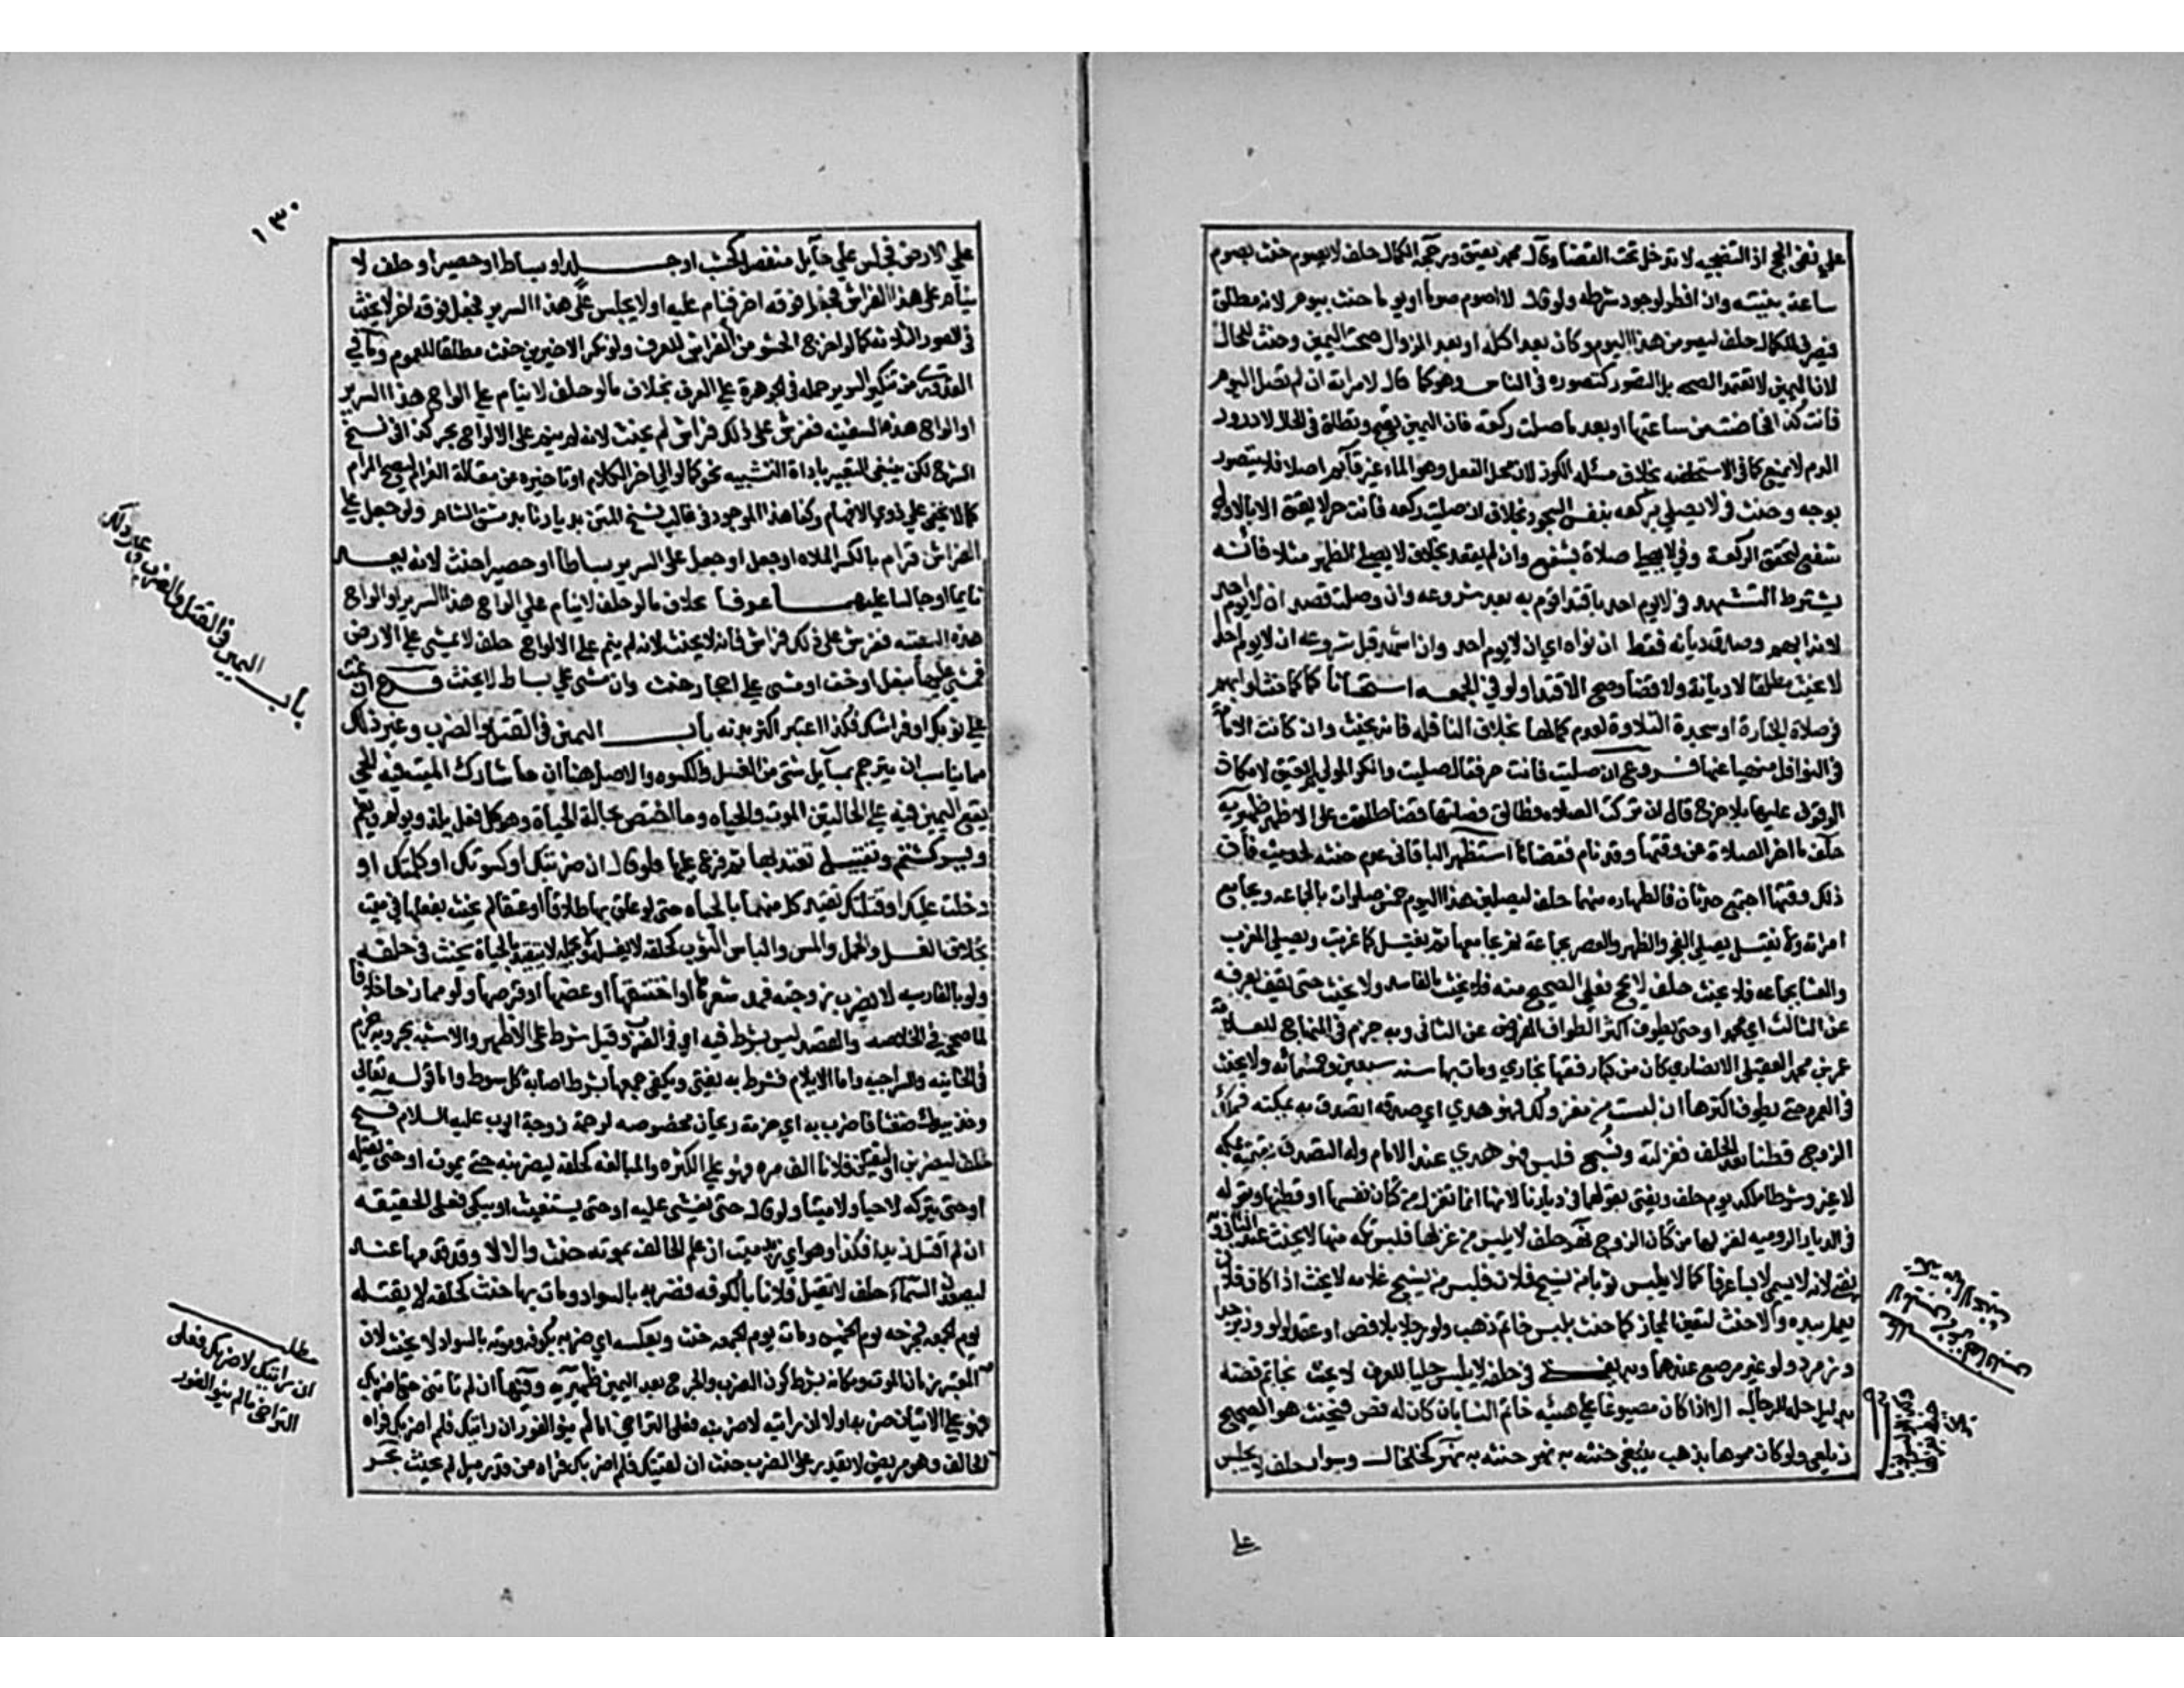 علي نفي الحج اذ التضحيه لا تدخل تحت القضا وقال محمد يعتق ورجحه الكمال حلف لا يصوم حنث بصوم
ساعة بنيته وان افطر لوجود شرطه ولو قال لا اصوم صوما او يوما حنث بيوم لانه مطلق
فيصرف للكامل حلف ليصومن هذا اليوم وكان بعد اكله او بعد الزوال صحت اليمين وحنث للحال
لان اليمين لا تعتمد الصحه بل التصور كتصوره في الناسي وهو كما قال لامراته ان لم تصل اليوم
فانت كذا فحاضت من ساعتها او بعد ما صلت ركعة فان اليمين تصح وتطلق في الحال لان درور
الدم لا يمنع كما في الاستحاضه بخلاف مسئلة الكوز لان محل الفعل وهو الماء غير قآيم اصلا فلا يتصور
بوجه وحنث في لا يصلي بركعه بنفس السجود بخلاف ان صليت ركعه فانت حر لا يعتق الا بالاولي
شفع لتحقق الركعة وفي لا يصلي صلاة بشفع وان لم يقعد بخلاف لا يصلي الظهر مثلا فانه
يشترط التشهد في لا يوم احد باقتدا قوم به بعد شروعه وان وصلت قصد ان لا يوم احد
لانه امهم وصدق ديانه فقط ان نواه اي ان لا يوم احد وان اشهد قبل شروعه ان لا يوم احدا
لا يحنث مطلقا لا ديانة ولا قضا وصح الاقتدا ولو في الجمعه استحسانا كما لا حنث لو امهم
في صلاة الجنازة او سجدة التلاوة لعدم كمالها بخلاف النافله فانه يحنث وان كانت الامامة
في النوافل منهيا عنها فروع ان صليت فانت حر فقال صليت وانكر المولي لم يعتق لامكان
الوقوف عليها بلا حرج قال ان تركت الصلاه فطالق فصلتها قضا طلقت علي الاظهر ظهيريه
حلف ما اخر الصلاة عن وقتها وقد نام فقضاها استظهر الباقاني عدم حنثه لحديث فان
ذلك وقتها اجتمع حدثان فالطهاره منهما حلف ليصلين هذا اليوم خمس صلوات بالجماعه ويجامع
امراته ولا يغتسل يصلي الفجر والظهر والعصر بجماعة ثم يجامعها ثم يغتسل كما غربت ويصلي المغرب
والعشا بجماعه فلا يحنث حلف لا يحج فعلي الصحيح منه فلا يحنث بالفاسد ولا يحنث حتى يقف بعرفه
عن الثالث اي محمد او حتى يطوف اكثر الطواف المفروض عن الثاني وبه جزم في المنهاج للعلامة
عمر بن محمد العقيلي الانصاري كان من كبار فقها بخاري ومات بها سنه سبعين وخمسمائه ولا يحنث
في العمرة حتى يطوف اكثرها ان لبست من مغزولك فهو هدي اي صدقه اتصدق به بمكه فملك
الزوج قطنا بعد الحلف فغزلته ونسج فلبس فهو هدي عند الامام وله التصدق بقيمته بمكه
لا غير وشرطا ملكه يوم حلف ويفتي بقولهما في ديارنا لانها انما تغزل من كتان نفسها او قطنها وبقوله
في الديار الروميه لغزلها من كتان الزوج نهر حلف لا يلبس من غزلها فلبس تكه منها لا يحنث عند الثاني وبه
يفتي لانه لا يسمي لابسا عرفا كما لا يلبس ثوبا من نسج فلان فلبس من نسج غلامه لا يحنث اذا كان فلان
يعمل بيده والا حنث لتعين المجاز كما حنث بلبس خاتم ذهب ولو رجلا بلا فص او عقد لولو وزبرجد
وزمرد ولو غير مرصع عندهما وبه يفتي في حلفه لا يلبس حليا للعرف لا يحنث بخاتم فضه
بدليل حله للرجال الا اذا كان مصوغا علي هيئه خاتم النسا بان كان له فص فيحنث هو الصحيح
زيلعي ولو كان مموها بذهب ينبغي حنثه به نهر حنثه به نهر كخلخال وسوار حلف لا يجلس
علي
١٣٠
علي الارض فجلس علي حآيل منفصل كخشب او جلد او بساط او حصير او حلف لا
ينام علي هذا الفراش فجعل فوقه اخر فنام عليه او لا يجلس علي هذا السرير فجعل فوقه اخر لا يحنث
في الصور الثلاثه كما لو اخرج الحشو من الفراش للعرف ولو نكر الاخيرين حنث مطلقا للعموم وما في
القدوري من تنكير السرير حمله في الجوهرة علي المعرف بخلاف ما لو حلف لا ينام علي الواح هذا السرير
او الواح هذه السفينه ففرش علي ذلك فراش لم يحنث لانه لم ينم علي الالواح بحر كذا في نسخ
الشرح لكن ينبغي التعبير باداة التشبيه نحو كما لو الي اخر الكلام او تاخيره عن مقالة القرام ليصح المرام
كما لا يخفي علي ذوي الافهام وكذا هذا الموجود في غالب نسخ المتن بديارنا بدمشق الشام ولو جعل علي
الفراش قرام بالكسر الملاه او جعل علي السرير بساطا او حصيرا حنث لانه يعد
نايما او جالسا عليهما عرفا بخلاف ما لو حلف لا ينام علي الواح هذا السرير او الواح
هذه السفينه ففرش علي ذلك فراش فانه لا يحنث لانه لم ينم علي الالواح حلف لا يمشي علي الارض
فمشي عليها بنعل او خف او مشي علي احجار حنث وان مشي علي بساط لا يحنث فرع ان نمت
علي ثوبك او فراشك فكذا اعتبر اكثر بدنه باب اليمين في القتل والضرب وغير ذلك
مما يناسب ان يترجم بمسآيل شتي من الغسل والكسوه والاصل هنا ان ما شارك الميت فيه الحي
يقع اليمين فيه علي الحالتين الموت والحياه وما اختص بحالة الحياة وهو كل فعل يلذ ويولم ويغم
ويسر كشتم وتقبيل تقيد بها ثم فرع عليها فلو قال ان ضربتك او كسوتك او كلمتك او
دخلت عليك او قبلتك تقيد كل منهما بالحياه حتى لو علق بها طلاقا او عتقا لم يحنث بفعلها في ميت
بخلاف الغسل والحمل والمس والباس الثوب كحلفه لا يغسله او يحمله لا يتقيد بالحياة يحنث في حلفه
ولو بالفارسيه لا يضرب زوجته فمد شعرها او اخنقها او عضها او قرصها ولو ممازحا خلافا
لما صححه في الخلاصه والقصد ليس بشرط فيه اي في الضرب وقيل شرط علي الاظهر والاشبه بحر وبه جزم
في الخانيه والسراجيه واما الايلام فشرط به يفتي ويكفي جمعها بشرط اصابة كل سوط واما قوله تعالي
وخذ بيدك ضغثا فاضرب به اي حزمة ريحان فخصوصه لرحمة زوجة ايوب عليه السلام فتح
حلف ليضربن او ليقتلن فلانا الف مره فهو علي الكثره والمبالغه كحلفه ليضربنه حتى يموت او حتى يقتله
او حتى يتركه لا حيا ولا ميتا ولو قال حتى يغشي عليه او حتى يستغيث او يبكي فعلي الحقيقه
ان لم اقتل زيدا فكذا وهو اي زيد ميت ان علم الحالف بموته حنث والا لا وقد قدمها عند
ليصعدن السمآء حلف لا يقتل فلانا بالكوفه فضربه بالسواد ومات بها حنث كحلفه لا يقتله
يوم الجمعه فجرحه يوم الخميس ومات يوم الجمعه حنث وبعكسه اي ضربه بكوفه وموته بالسواد لا يحنث لان
المعتبر زمان الموت ومكانه بشرط كون الضرب والجرح بعد اليمين ظهيريه وفيها ان لم تاتني حتى اضربك
فهو علي الاتيان ضربه او لا ان رايته لاضربنه فعلي التراخي ما لم ينو الفور ان رايتك فلم اضربك فراه
الحالف وهو مريض لا يقدر علي الضرب حنث ان لقيتك فلم اضربك فراه من قدر ميل لم يحنث بحر
باب اليمين في القتل والضرب وغير ذلك
مطلب
ان رايتك لاضربك فعلي
التراخي ما لم ينو الفور